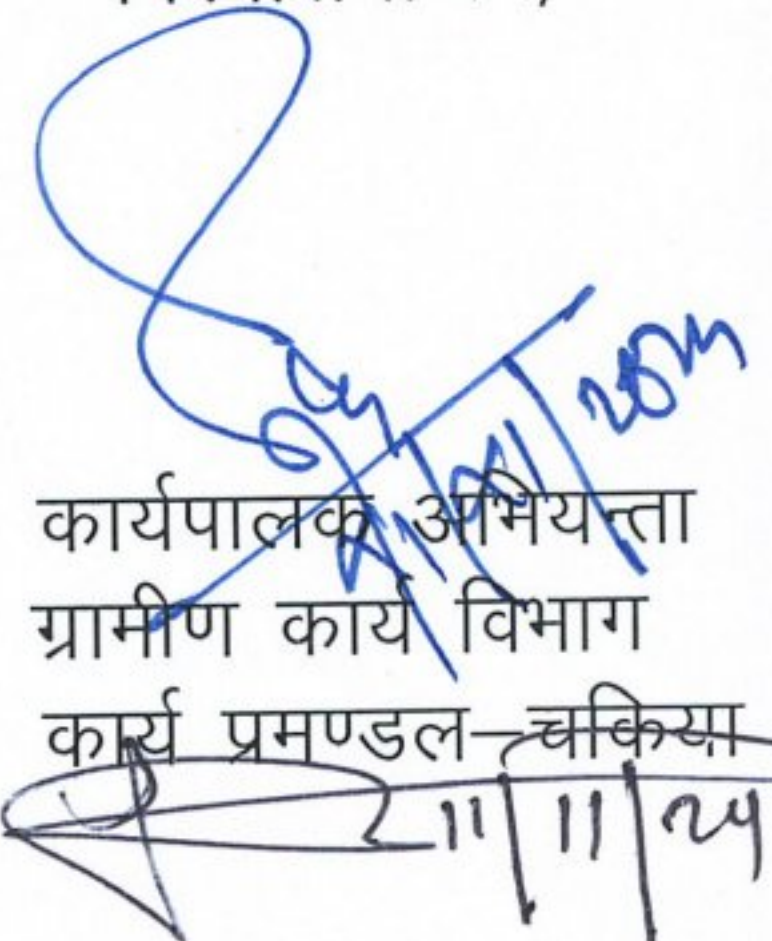 कार्यपालक अभियन्ता
ग्रामीण कार्य विभाग
कार्य प्रमण्डल–चकिया
11/11/24